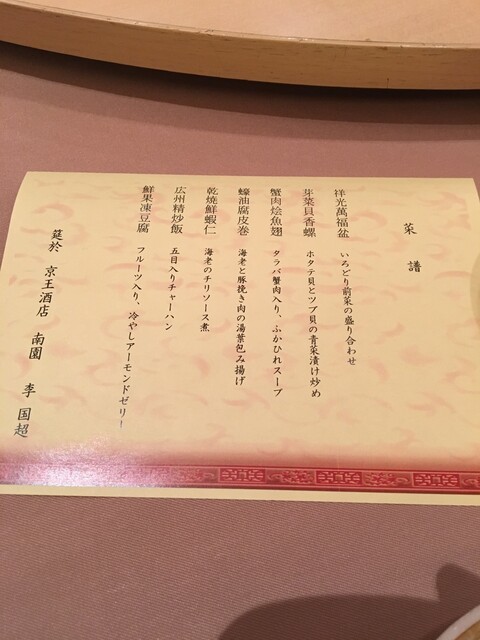 菜譜
祥光萬福盆 いろどり前菜の盛り合わせ
芽菜貝香螺 ホタテ貝とツブ貝の青菜漬け炒め
蟹肉燴魚翅 タラバ蟹肉入り、ふかひれスープ
蠔油腐皮巻 海老と豚挽き肉の湯葉包み揚げ
乾焼鮮蝦仁 海老のチリソース煮
広州精炒飯 五目入りチャーハン
鮮果凍豆腐 フルーツ入り、冷やしアーモンドゼリー
筵於 京王酒店 南園 李国超